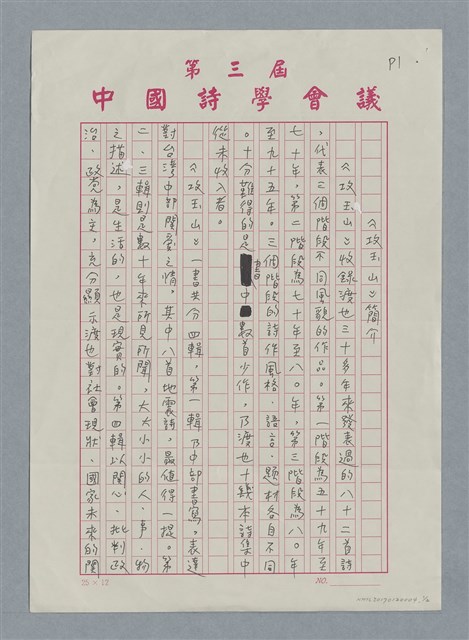 P1.
第三屆
中國詩學會議
《攻玉山》簡介
《攻玉山》收錄渡也三十多年來發表過的八十二首詩
，代表三個階段不同風貌的作品。第一階段為五十九年至
七十年，第二階段為七十年至八〇年，第三階段為八〇年
至九十五年。三個階段的詩作風格、語言、題材各自不同
。十分難得的是書中數首少作，乃渡也十幾本詩集中
從未收入者。
《攻玉山》一書共分四輯，第一輯乃中部書寫，表達
對台灣中部關愛之情。其中八首地震詩，最值得一提。第
二、三輯則是數十年來所見所聞，大大小小的人、事、物
之描述，是生活的，也是現實的。第四輯以關心、批判政
治、政党為主，充分顯示渡也對社會現狀、國家未來的關
25×12
NO.